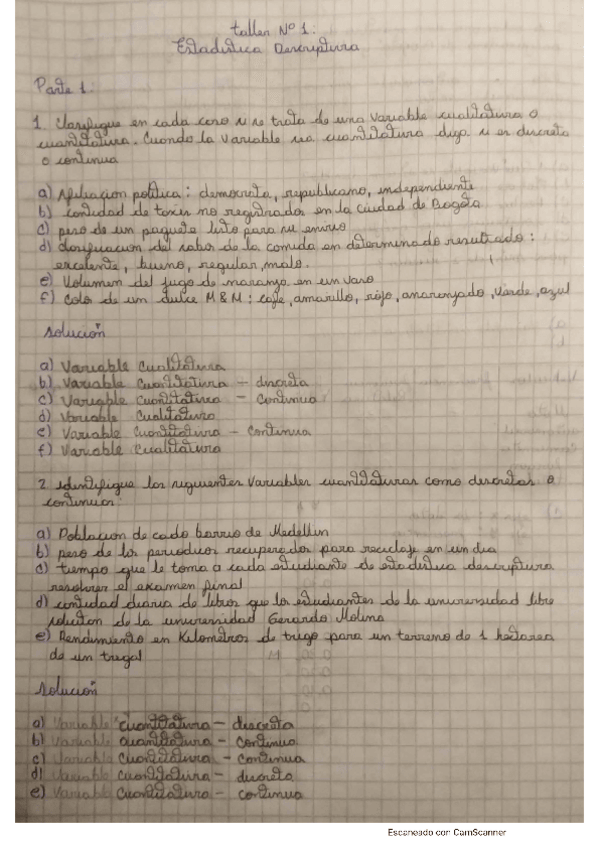 taller Nº 1:
Estadistica Descriptiva
Parte 1:
1. Clasifique en cada caso si se trata de una variable cualitativa o
cuantitativa. Cuando la variable sea cuantitativa diga si es discreta
o continua
a) Afiliacion politica: democrata, republicano, independiente
b) cantidad de taxis no registrados en la ciudad de Bogota
c) peso de un paquete listo para su envio
d) clasificacion del sabor de la comida en determinado resultado:
excelente, bueno, regular, malo.
e) Volumen del jugo de naranja en un vaso
f) Color de un dulce M&M: cafe, amarillo, rojo, anaranjado, verde, azul
solución
a) Variable Cualitativa
b) Variable Cuantitativa - discreta
c) Variable Cuantitativa - Continua
d) Variable Cualitativa
e) Variable Cuantitativa - Continua
f) Variable Cualitativa
2. identifique las siguientes Variables cuantitativas como discretas o
continuas:
a) Poblacion de cada barrio de Medellin
b) peso de los periodicos recuperados para reciclaje en un dia
c) tiempo que le toma a cada estudiante de estadistica descriptiva
resolver el examen final
d) cantidad diaria de libros que los estudiantes de la universidad libre
solicitan de la universidad Gerardo Molina
e) Rendimiento en Kilometros de trigo para un terreno de 1 hectarea
de un trigal
solución
a) Variable cuantitativa - discreta
b) Variable cuantitativa - Continua
c) Variable Cuantitativa - Continua
d) Variable cuantitativa - discreta
e) Variable Cuantitativa - continua
Escaneado con CamScanner